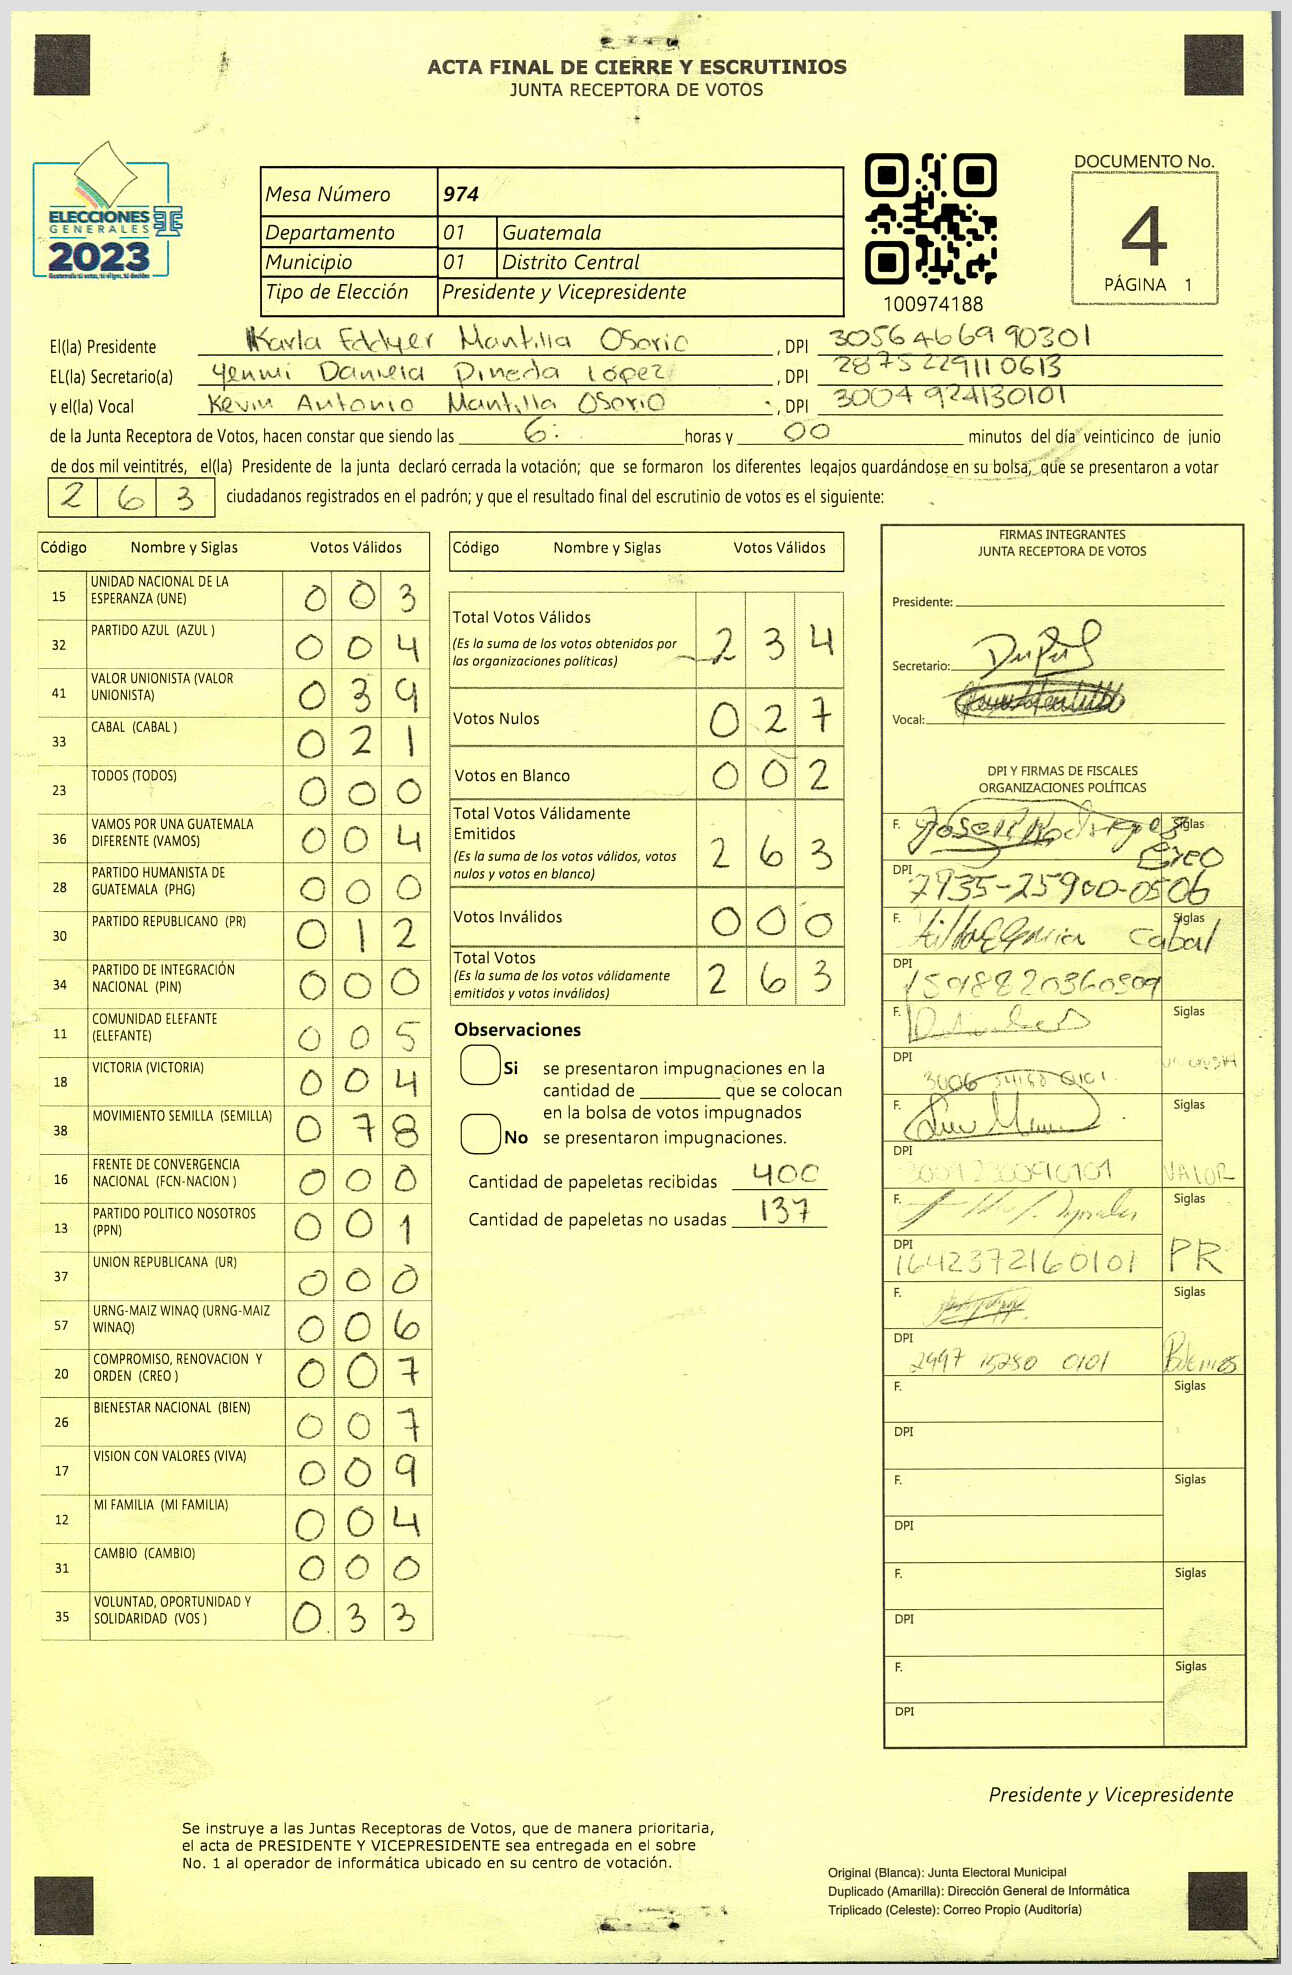 ACTA FINAL DE CIERRE Y ESCRUTINIOS
JUNTA RECEPTORA DE VOTOS
ELECCIONES
GENERALES
2023
Mesa Número 974
Departamento 01 Guatemala
Municipio 01 Distrito Central
Tipo de Elección Presidente y Vicepresidente
100974188
DOCUMENTO No.
4
PÁGINA 1
El(la) Presidente Karla Eddyer Mantilla Osorio, DPI 3056466990301
EL(la) Secretario(a) Yenmi Daniela Pineda López, DPI 2875229110613
y el(la) Vocal Kevin Antonio Mantilla Osorio, DPI 3004924130101
de la Junta Receptora de Votos, hacen constar que siendo las 6: horas y 00 minutos del día veinticinco de junio
de dos mil veintitrés, el(la) Presidente de la junta declaró cerrada la votación; que se formaron los diferentes legajos guardándose en su bolsa, que se presentaron a votar
2 6 3 ciudadanos registrados en el padrón; y que el resultado final del escrutinio de votos es el siguiente:
Código Nombre y Siglas Votos Válidos
15 UNIDAD NACIONAL DE LA ESPERANZA (UNE) 0 0 3
32 PARTIDO AZUL (AZUL ) 0 0 4
41 VALOR UNIONISTA (VALOR UNIONISTA) 0 3 9
33 CABAL (CABAL ) 0 2 1
23 TODOS (TODOS) 0 0 0
36 VAMOS POR UNA GUATEMALA DIFERENTE (VAMOS) 0 0 4
28 PARTIDO HUMANISTA DE GUATEMALA (PHG) 0 0 0
30 PARTIDO REPUBLICANO (PR) 0 1 2
34 PARTIDO DE INTEGRACIÓN NACIONAL (PIN) 0 0 0
11 COMUNIDAD ELEFANTE (ELEFANTE) 0 0 5
18 VICTORIA (VICTORIA) 0 0 4
38 MOVIMIENTO SEMILLA (SEMILLA) 0 7 8
16 FRENTE DE CONVERGENCIA NACIONAL (FCN-NACION ) 0 0 0
13 PARTIDO POLITICO NOSOTROS (PPN) 0 0 1
37 UNION REPUBLICANA (UR) 0 0 0
57 URNG-MAIZ WINAQ (URNG-MAIZ WINAQ) 0 0 6
20 COMPROMISO, RENOVACION Y ORDEN (CREO ) 0 0 7
26 BIENESTAR NACIONAL (BIEN) 0 0 7
17 VISION CON VALORES (VIVA) 0 0 9
12 MI FAMILIA (MI FAMILIA) 0 0 4
31 CAMBIO (CAMBIO) 0 0 0
35 VOLUNTAD, OPORTUNIDAD Y SOLIDARIDAD (VOS ) 0 3 3
Código Nombre y Siglas Votos Válidos
Total Votos Válidos 2 3 4
(Es la suma de los votos obtenidos por
las organizaciones políticas)
Votos Nulos 0 2 7
Votos en Blanco 0 0 2
Total Votos Válidamente
Emitidos 2 6 3
(Es la suma de los votos válidos, votos
nulos y votos en blanco)
Votos Inválidos 0 0 0
Total Votos 2 6 3
(Es la suma de los votos válidamente
emitidos y votos inválidos)
Observaciones
Si se presentaron impugnaciones en la
cantidad de ________ que se colocan
en la bolsa de votos impugnados
No se presentaron impugnaciones.
Cantidad de papeletas recibidas 400
Cantidad de papeletas no usadas 137
FIRMAS INTEGRANTES
JUNTA RECEPTORA DE VOTOS
Presidente:
Secretario:
Vocal:
DPI Y FIRMAS DE FISCALES
ORGANIZACIONES POLÍTICAS
F. Siglas
Creo
DPI 7935-25900-0506
F. Siglas
Cabal
DPI 1598820360509
F. Siglas
DPI 3006 0101
F. Siglas
DPI VALOR
F. Siglas
DPI 1642372160101 PR
F. Siglas
DPI 2997 15280 0101 Podemos
F. Siglas
DPI
F. Siglas
DPI
F. Siglas
DPI
F. Siglas
DPI
Presidente y Vicepresidente
Se instruye a las Juntas Receptoras de Votos, que de manera prioritaria,
el acta de PRESIDENTE Y VICEPRESIDENTE sea entregada en el sobre
No. 1 al operador de informática ubicado en su centro de votación.
Original (Blanca): Junta Electoral Municipal
Duplicado (Amarilla): Dirección General de Informática
Triplicado (Celeste): Correo Propio (Auditoría)